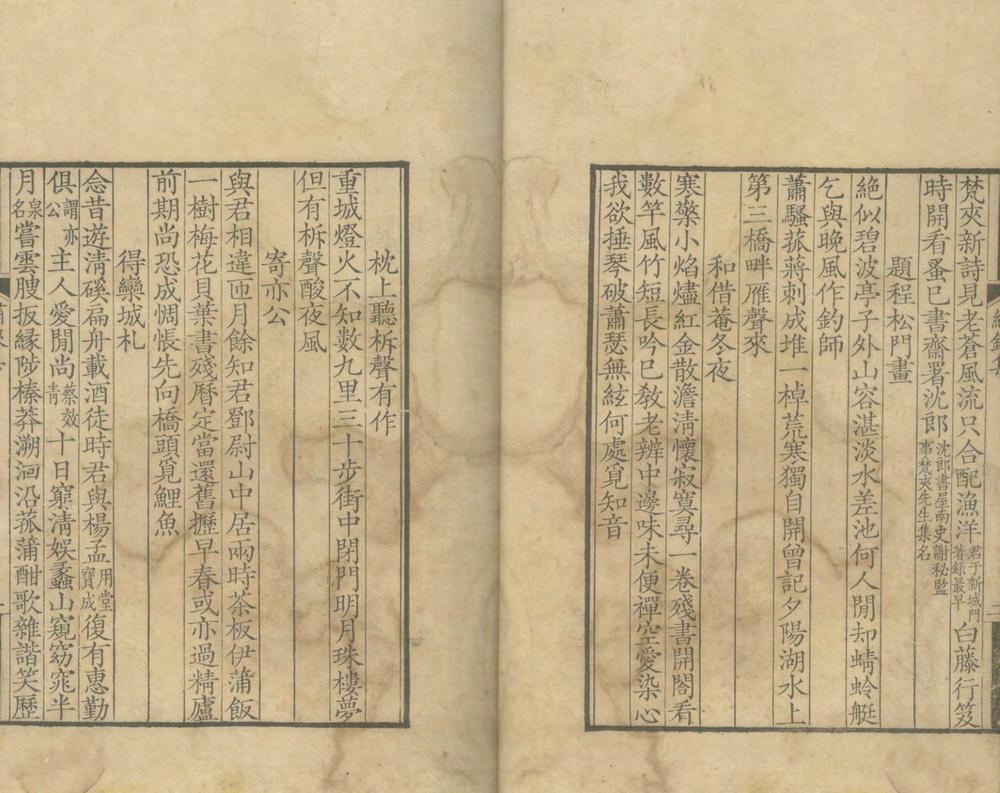 梵夾新詩見老蒼風流只合配漁洋君于新城門著錄最早白藤行笈
時開看蚤巳書齋署沈郎沈郎書屋南史謝秘監事梵夾先生集名
題程松門畫
絶似碧波亭子外山容湛淡水差池何人閒却蜻蛉艇
乞與晚風作釣師
蕭騷菰蔣刺成堆一棹荒寒獨自開曾記夕陽湖水上
第三橋畔雁聲來
和借菴冬夜
寒藥小焰燼紅金散澹淸懷寂寞尋一卷殘書開閤看
數竿風竹短長吟巳敎老辨中邊味未便禪空愛染心
我欲捶琴破蕭瑟無絃何處覓知音
枕上聽柝聲有作
重城燈火不知數九里三十步街中閉門明月珠樓夢
但有柝聲酸夜風
寄亦公
與君相違匝月餘知君鄧尉山中居兩時茶板伊蒲飯
一樹梅花貝葉書殘曆定當還舊攊早春或亦過精廬
前期尚恐成惆悵先向橋頭覓鯉魚
得欒城札
念昔遊淸磎扁舟載酒徒時君與楊孟用堂寶成復有惠勤
俱謂亦公主人愛閒尚蔡效靑十日窮淸娛蠡山窺窈窕半
月泉名嘗雲腴扳緣陟榛莽溯洄沿菰蒲酣歌雜諧笑歷